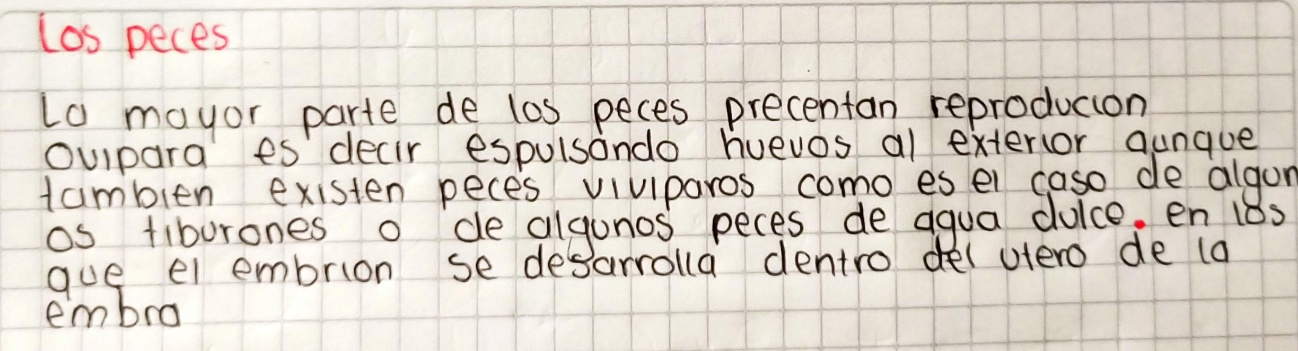 Los peces
La mayor parte de los peces precentan reproducion
Ovipara es decir espulsando huevos al exterior aunque
tambien existen peces viviparos como es el caso de algun
os tiburones o de algunos peces de agua dulce. en los
que el embrion se desarrolla dentro del utero de la
embra